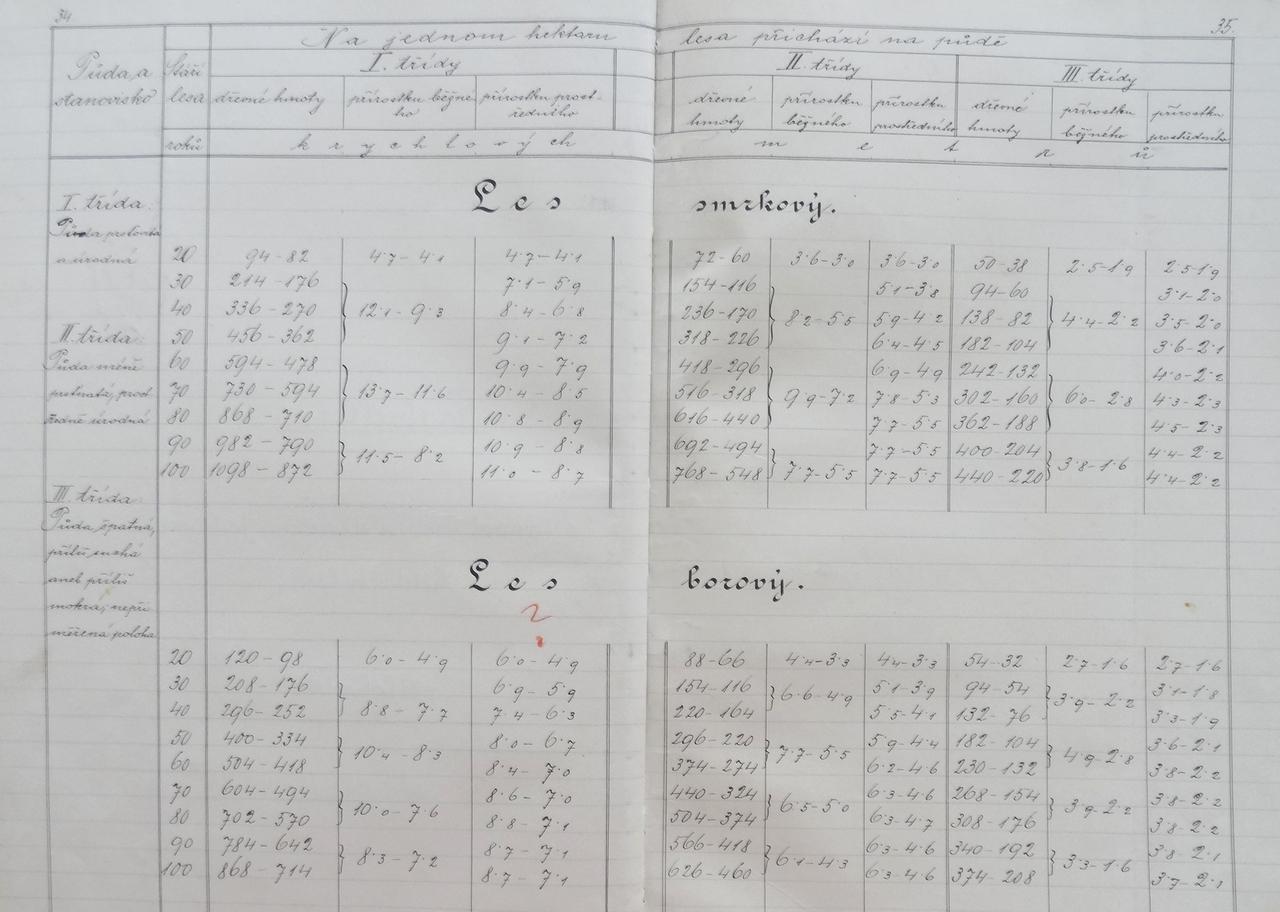 34
35.
Na jednom hektaru lesa přichází na půdě
Půda a stanovisko
Stáří lesa
I. třídy
II. třídy
III. třídy
dřevné hmoty
přírostku běžné-
ho
přírostku prost-
ředního
dřevné hmoty
přírostku běžného
přírostku prostředního
dřevné hmoty
přírostku běžného
přírostku prostředního
roků
krychlových metrů
I. třída:
Půda prstovita
a úrodná
II. třída:
Půda méně
prstnatá, prost
ředně úrodná
III. třída:
Půda špatná,
příliš suchá
aneb příliš
mokrá; nepři
měřená poloha
Les smrkový.
20 94-82 4·7-4·1 4·7-4·1 72-60 3·6-3·0 3·6-3·0 50-38 2·5-1·9 2·5-1·9
30 214-176 7·1-5·9 154-116 5·1-3·8 94-60 3·1-2·0
40 336-270 12·1-9·3 8·4-6·8 236-170 8·2-5·5 5·9-4·2 138-82 4·4-2·2 3·5-2·0
50 456-362 9·1-7·2 318-226 6·4-4·5 182-104 3·6-2·1
60 594-478 9·9-7·9 418-296 6·9-4·9 242-132 4·0-2·2
70 730-594 13·7-11·6 10·4-8·5 516-318 9·9-7·2 7·8-5·3 302-160 6·0-2·8 4·3-2·3
80 868-710 10·8-8·9 616-440 7·7-5·5 362-188 4·5-2·3
90 982-790 10·9-8·8 692-494 7·7-5·5 400-204 4·4-2·2
100 1098-872 11·5-8·2 11·0-8·7 768-548 7·7-5·5 7·7-5·5 440-220 3·8-1·6 4·4-2·2
Les borový.
?
20 120-98 6·0-4·9 6·0-4·9 88-66 4·4-3·3 4·4-3·3 54-32 2·7-1·6 2·7-1·6
30 208-176 6·9-5·9 154-116 6·6-4·9 5·1-3·9 94-54 3·9-2·2 3·1-1·8
40 296-252 8·8-7·7 7·4-6·3 220-164 5·5-4·1 132-76 3·3-1·9
50 400-334 10·4-8·3 8·0-6·7 296-220 7·7-5·5 5·9-4·4 182-104 4·9-2·8 3·6-2·1
60 504-418 8·4-7·0 374-274 6·2-4·6 230-132 3·8-2·2
70 604-494 10·0-7·6 8·6-7·0 440-324 6·5-5·0 6·3-4·6 268-154 3·9-2·2 3·8-2·2
80 702-570 8·8-7·1 504-374 6·3-4·7 308-176 3·8-2·2
90 784-642 8·3-7·2 8·7-7·1 566-418 6·1-4·3 6·3-4·6 340-192 3·3-1·6 3·8-2·1
100 868-714 8·7-7·1 626-460 6·3-4·6 374-208 3·7-2·1